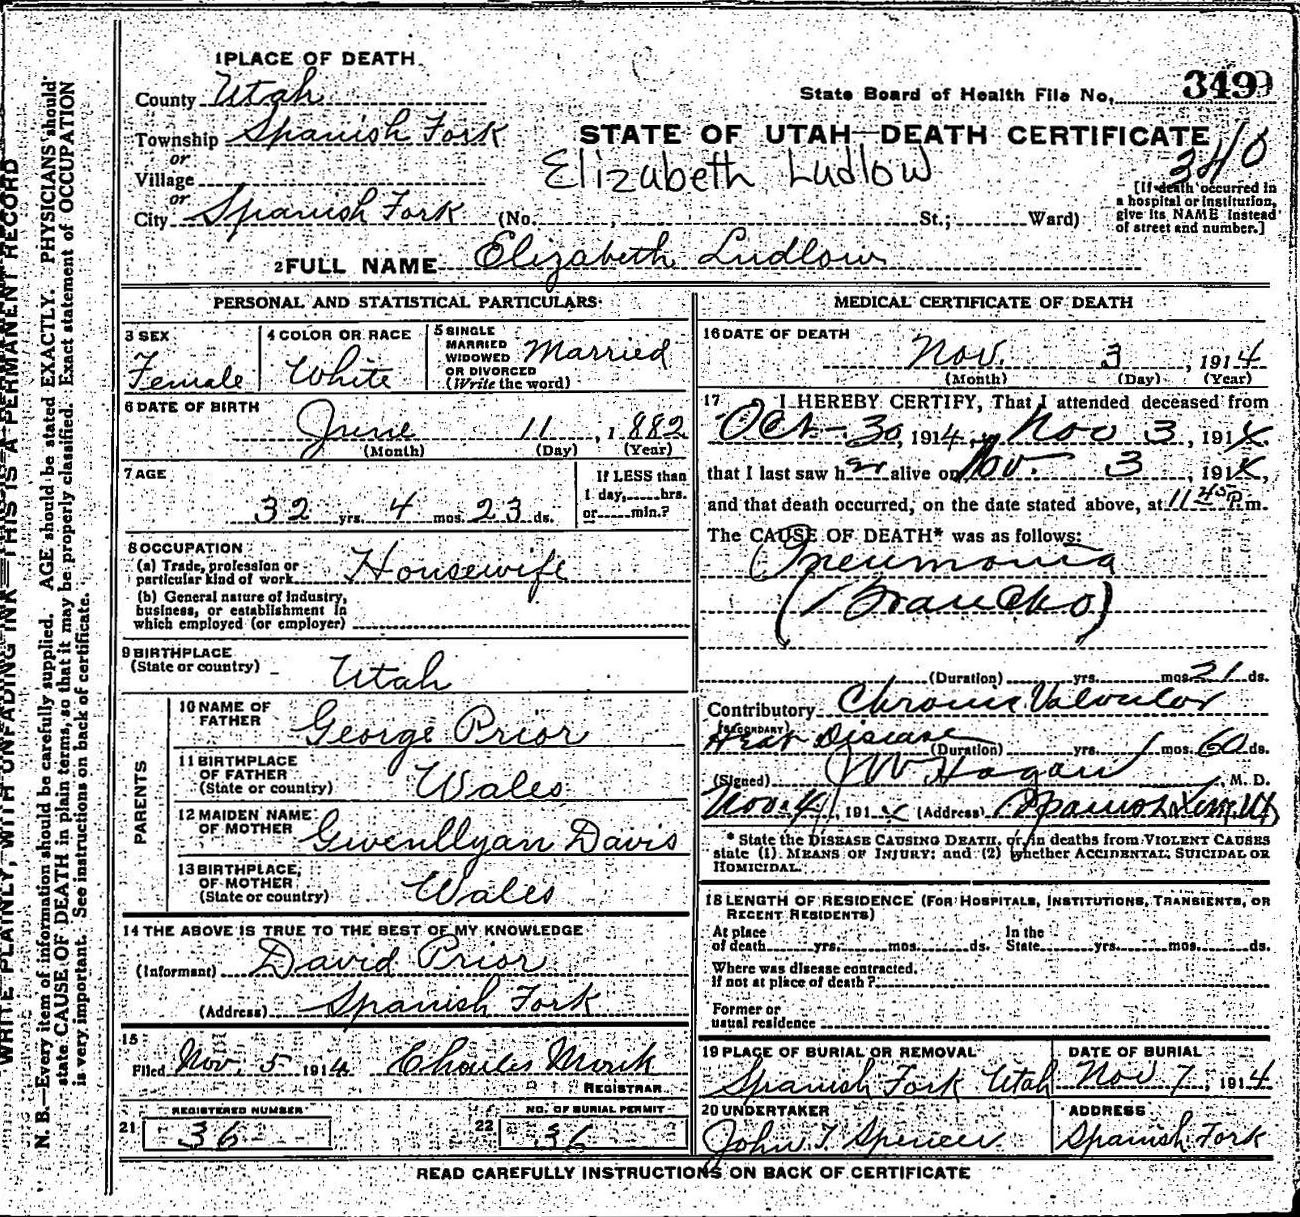 1 PLACE OF DEATH
County Utah
State Board of Health File No. 349
Township Spanish Fork
STATE OF UTAH—DEATH CERTIFICATE
340
or
Village
Elizabeth Ludlow
or
City Spanish Fork (No. St.; Ward)
[If death occurred in
a hospital or institution,
give its NAME instead
of street and number.]
2 FULL NAME Elizabeth Ludlow
PERSONAL AND STATISTICAL PARTICULARS
3 SEX
Female
4 COLOR OR RACE
White
5 SINGLE
MARRIED
WIDOWED
OR DIVORCED
(Write the word)
Married
6 DATE OF BIRTH
June 11, 1882
(Month) (Day) (Year)
7 AGE
32 yrs. 4 mos. 23 ds.
If LESS than
1 day, hrs.
or min.?
8 OCCUPATION
(a) Trade, profession or
particular kind of work Housewife
(b) General nature of industry,
business, or establishment in
which employed (or employer)
9 BIRTHPLACE
(State or country) Utah
PARENTS
10 NAME OF
FATHER George Prior
11 BIRTHPLACE
OF FATHER
(State or country) Wales
12 MAIDEN NAME
OF MOTHER Gwenllyan Davis
13 BIRTHPLACE,
OF MOTHER
(State or country) Wales
14 THE ABOVE IS TRUE TO THE BEST OF MY KNOWLEDGE
(Informant) David Prior
(Address) Spanish Fork
15
Filed Nov. 5 1914 Charles Monk
REGISTRAR
21 REGISTERED NUMBER
36
22 NO. OF BURIAL PERMIT
36
MEDICAL CERTIFICATE OF DEATH
16 DATE OF DEATH
Nov. 3, 1914
(Month) (Day) (Year)
17 I HEREBY CERTIFY, That I attended deceased from
Oct 30, 1914, Nov 3, 1914,
that I last saw her alive on Nov. 3, 1914,
and that death occurred, on the date stated above, at 11 45 P.m.
The CAUSE OF DEATH* was as follows:
Pneumonia
(Broncho)
(Duration) yrs. mos. 21 ds.
Contributory Chronic Valvular
(SECONDARY)
Heart Disease (Duration) yrs. mos. 60 ds.
(Signed) J W Hagan M. D.
Nov. 4, 1914 (Address) Spanish Fork, Ut
* State the DISEASE CAUSING DEATH, or, in deaths from VIOLENT CAUSES
state (1) MEANS OF INJURY; and (2) whether ACCIDENTAL, SUICIDAL OR
HOMICIDAL.
18 LENGTH OF RESIDENCE (FOR HOSPITALS, INSTITUTIONS, TRANSIENTS, OR
RECENT RESIDENTS)
At place
of death yrs. mos. ds.
In the
State yrs. mos. ds.
Where was disease contracted,
if not at place of death?
Former or
usual residence
19 PLACE OF BURIAL OR REMOVAL
Spanish Fork Utah
DATE OF BURIAL
Nov 7, 1914
20 UNDERTAKER
John T. Spencer
ADDRESS
Spanish Fork
READ CAREFULLY INSTRUCTIONS ON BACK OF CERTIFICATE
WRITE PLAINLY, WITH UNFADING INK—THIS IS A PERMANENT RECORD
N. B.—Every item of information should be carefully supplied. AGE should be stated EXACTLY. PHYSICIANS should
state CAUSE OF DEATH in plain terms, so that it may be properly classified. Exact statement of OCCUPATION
is very important. See instructions on back of certificate.